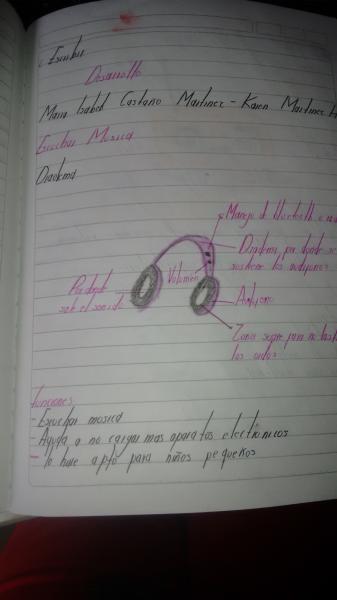 c. Escribir
Desarrollo
Maria Isabel Castaño Martinez - Karen Martinez
Escuchar Musica
Diadema
Manejo de bluetooth o
Diadema por donde se
sostiene los audifonos
Volumen
Por donde
sale el sonido
Audifono
Zona segura para no
los oidos
funciones
- Escuchar mosica
- Ayuda a no cargar mas aparatos electronicos
- lo hace apto para niños pequeños